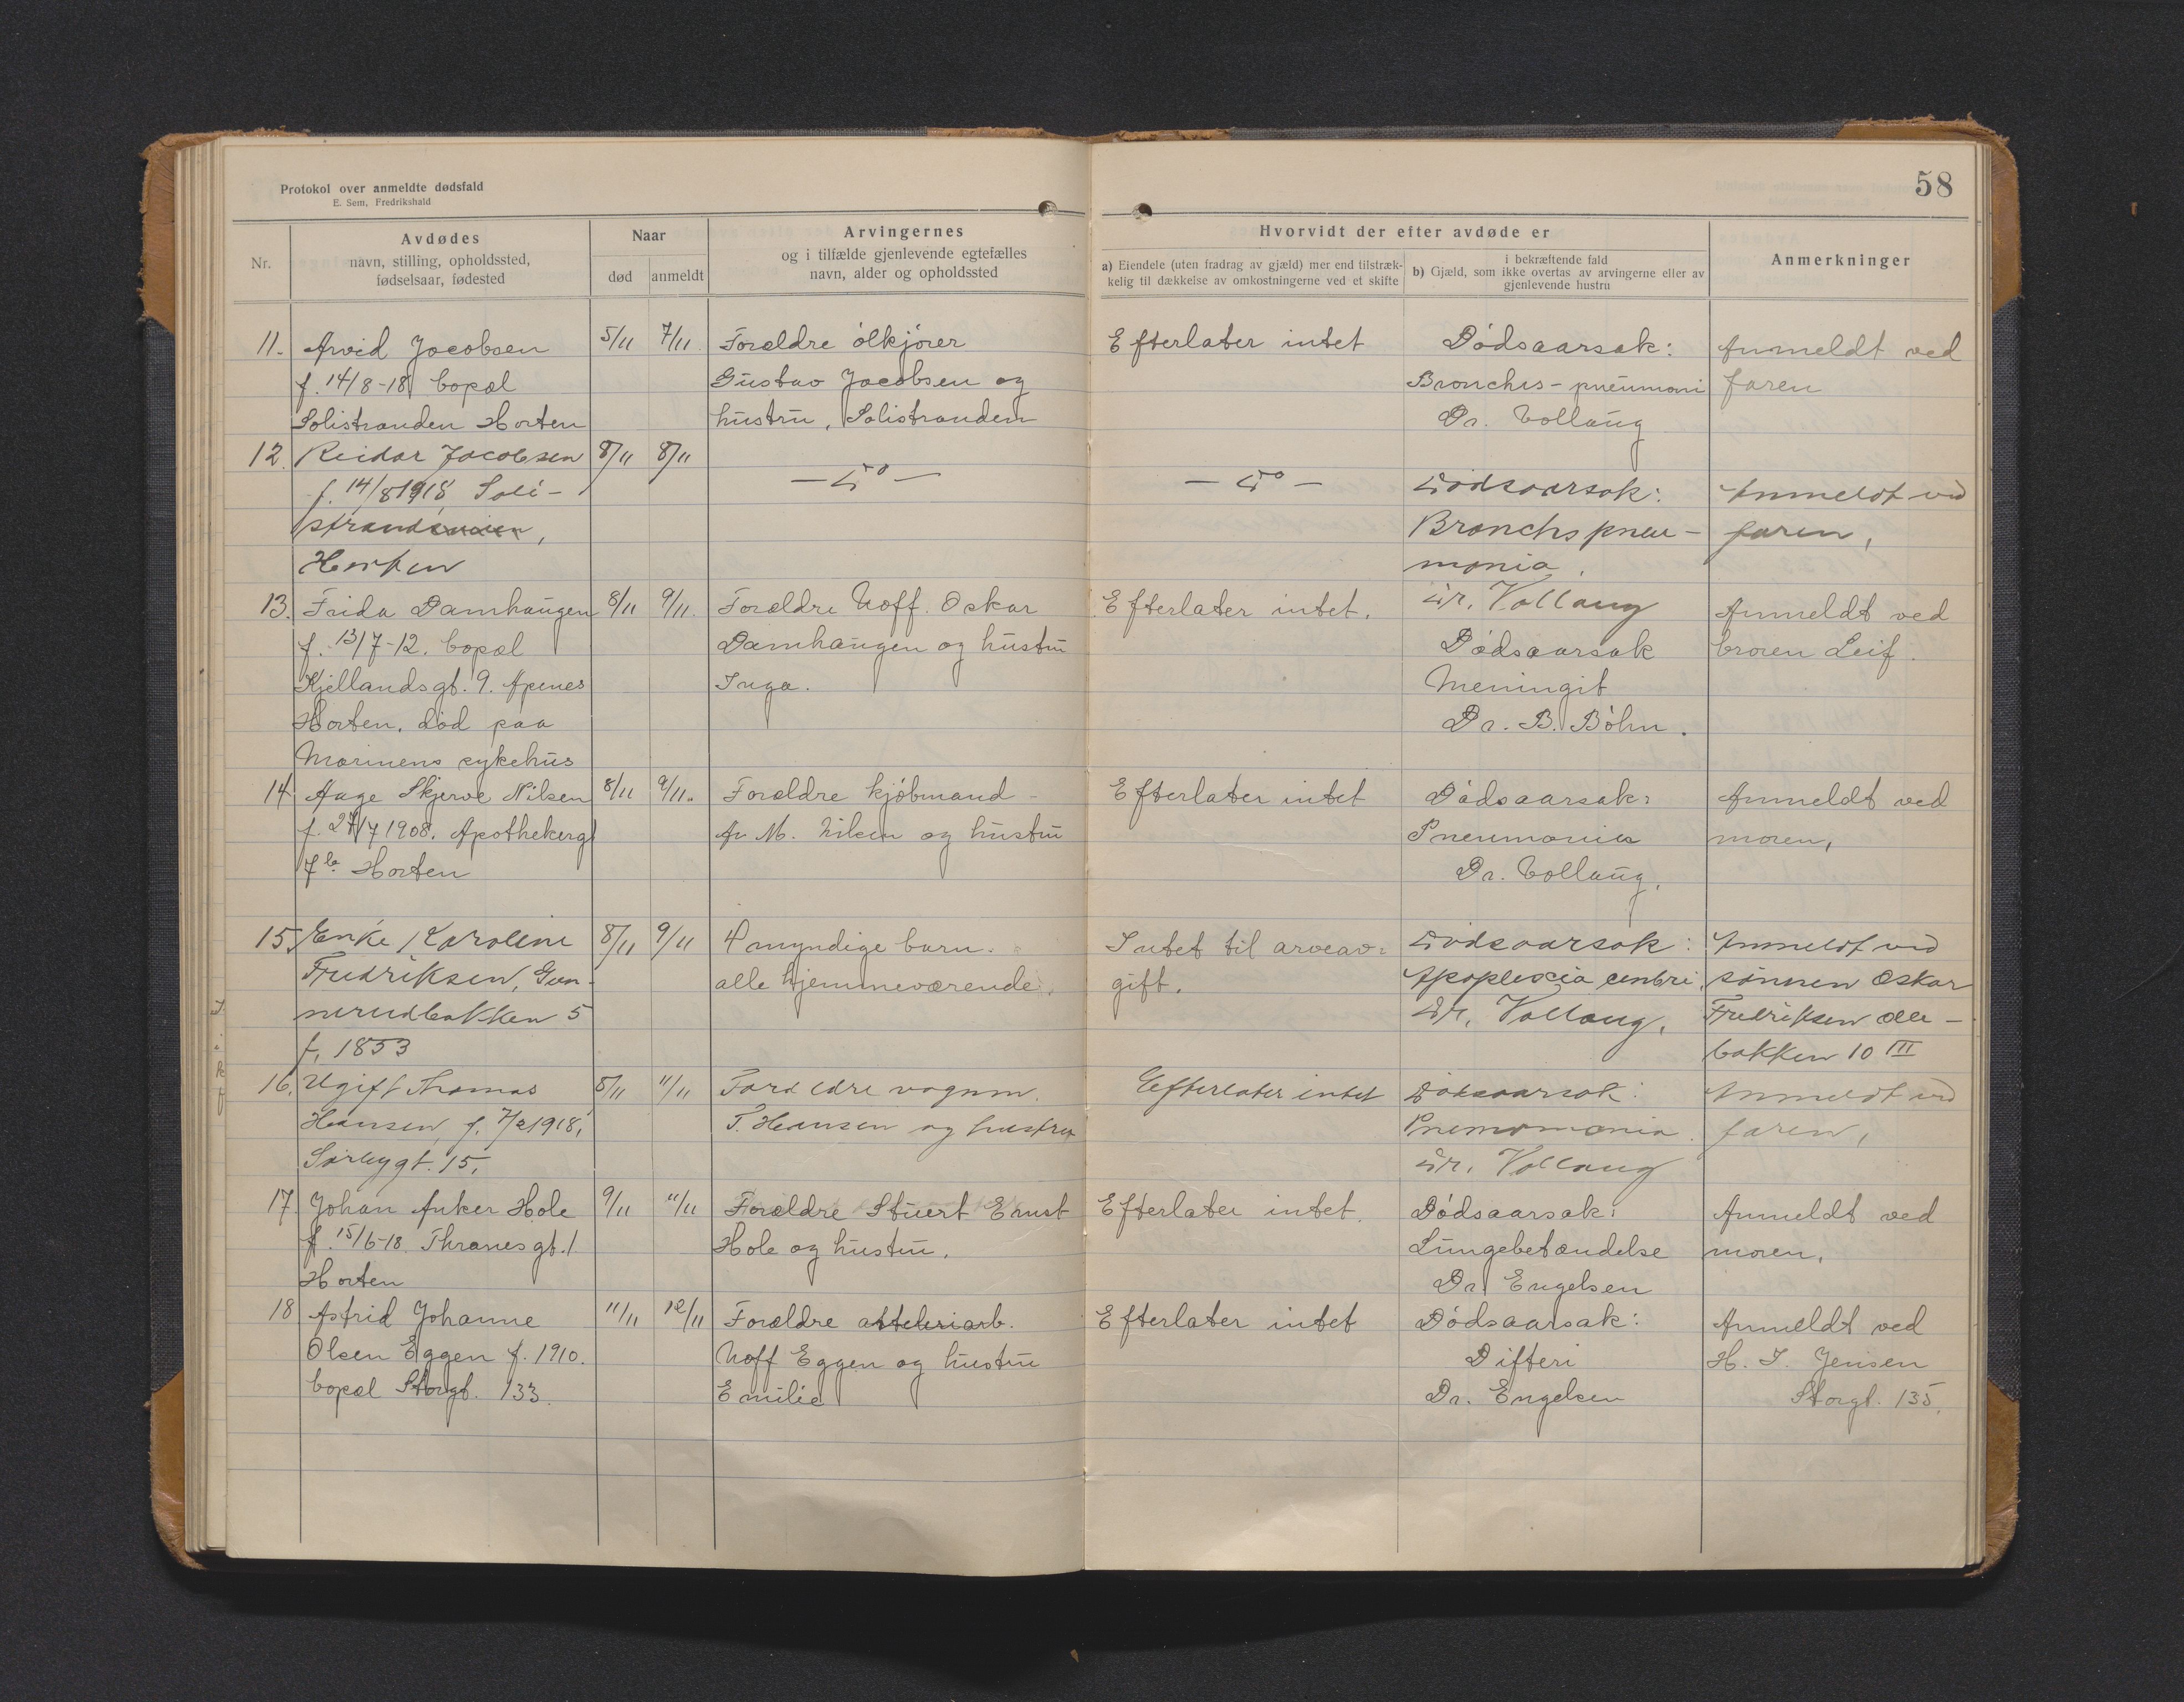 Protokol over anmeldte dødsfald
E. Sem, Fredrikshald
58
Nr.
Avdødes
navn, stilling, opholdssted,
fødselsaar, fødested
Naar
død
anmeldt
Arvingernes
og i tilfælde gjenlevende egtefælles
navn, alder og opholdssted
Hvorvidt der efter avdøde er
a) Eiendele (uten fradrag av gjæld) mer end tilstræk-
kelig til dækkelse av omkostningerne ved et skifte
i bekræftende fald
b) Gjæld, som ikke overtas av arvingerne eller av
gjenlevende hustru
Anmerkninger
11.
Arvid Jacobsen
f. 14/8-18 bopæl
Solistranden Horten
5/11
7/11
Forældre ølkjører
Gustav Jacobsen og
hustru, Solistranden
Efterlater intet
Dødsaarsak:
Bronchis-pneumoni
Dr. Vollaug
Anmeldt ved
faren
12.
Reidar Jacobsen
f. 14/8 1918, Soli-
stranden,
Horten
8/11
8/11
- Do -
- Do -
Dødsaarsak:
Bronchspneu-
monia.
Dr. Vollaug
Anmeldt ved
faren,
13.
Frida Damhaugen
f. 13/7-12. bopæl
Kjellandsgt. 9. Apenes
Horten. død paa
Marinens sykehus
8/11
9/11.
Forældre Uoff. Oskar
Damhaugen og hustru
Inga.
Efterlater intet.
Dødsaarsak
Meningit
Dr. B. Bøhn.
Anmeldt ved
broren Leif.
14
Aage Skjerve Nilsen
f. 27/7 1908. Apothekergt
7b Horten
8/11
9/11.
Forældre kjøbmand
An. M. Nilsen og hustru
Efterlater intet
Dødsaarsak:
Pneumonia
Dr. Vollaug.
Anmeldt ved
moren,
15.
Enke Karoline
Fredriksen, Gun-
nerudbakken 5
f. 1853
8/11
9/11
4 myndige barn.
alle hjemmeværende.
Intet til arveav=
gift.
Dødsaarsak:
Apoplexia cerebri
Dr. Vollaug.
Anmeldt ved
sønnen Oskar
Fredriksen
bakken 10 III
16.
Ugift Thomas
Hansen, f. 7/2 1918,
Sørbygt. 15,
8/11
11/11
Forældre vognm.
T. Hansen og hustru
Efterlater intet
Dødsaarsak:
Pnemomonia.
Dr. Vollaug
Anmeldt ved
faren,
17
Johan Anker Hole
f. 15/6-18. Thranesgt. 1
Horten
9/11
11/11
Forældre Stuert Ernst
Hole og hustru.
Efterlater intet.
Dødsaarsak:
Lungebetændelse
Dr. Engelsen
Anmeldt ved
moren.
18
Astrid Johanne
Olsen Eggen f. 1910.
bopæl Storgt. 133.
11/11
12/11
Forældre
Uoff Eggen og hustru
Emilie
Efterlater intet
Dødsaarsak:
Difteri
Dr. Engelsen
Anmeldt ved
H. J. Jensen
Storgt. 135.